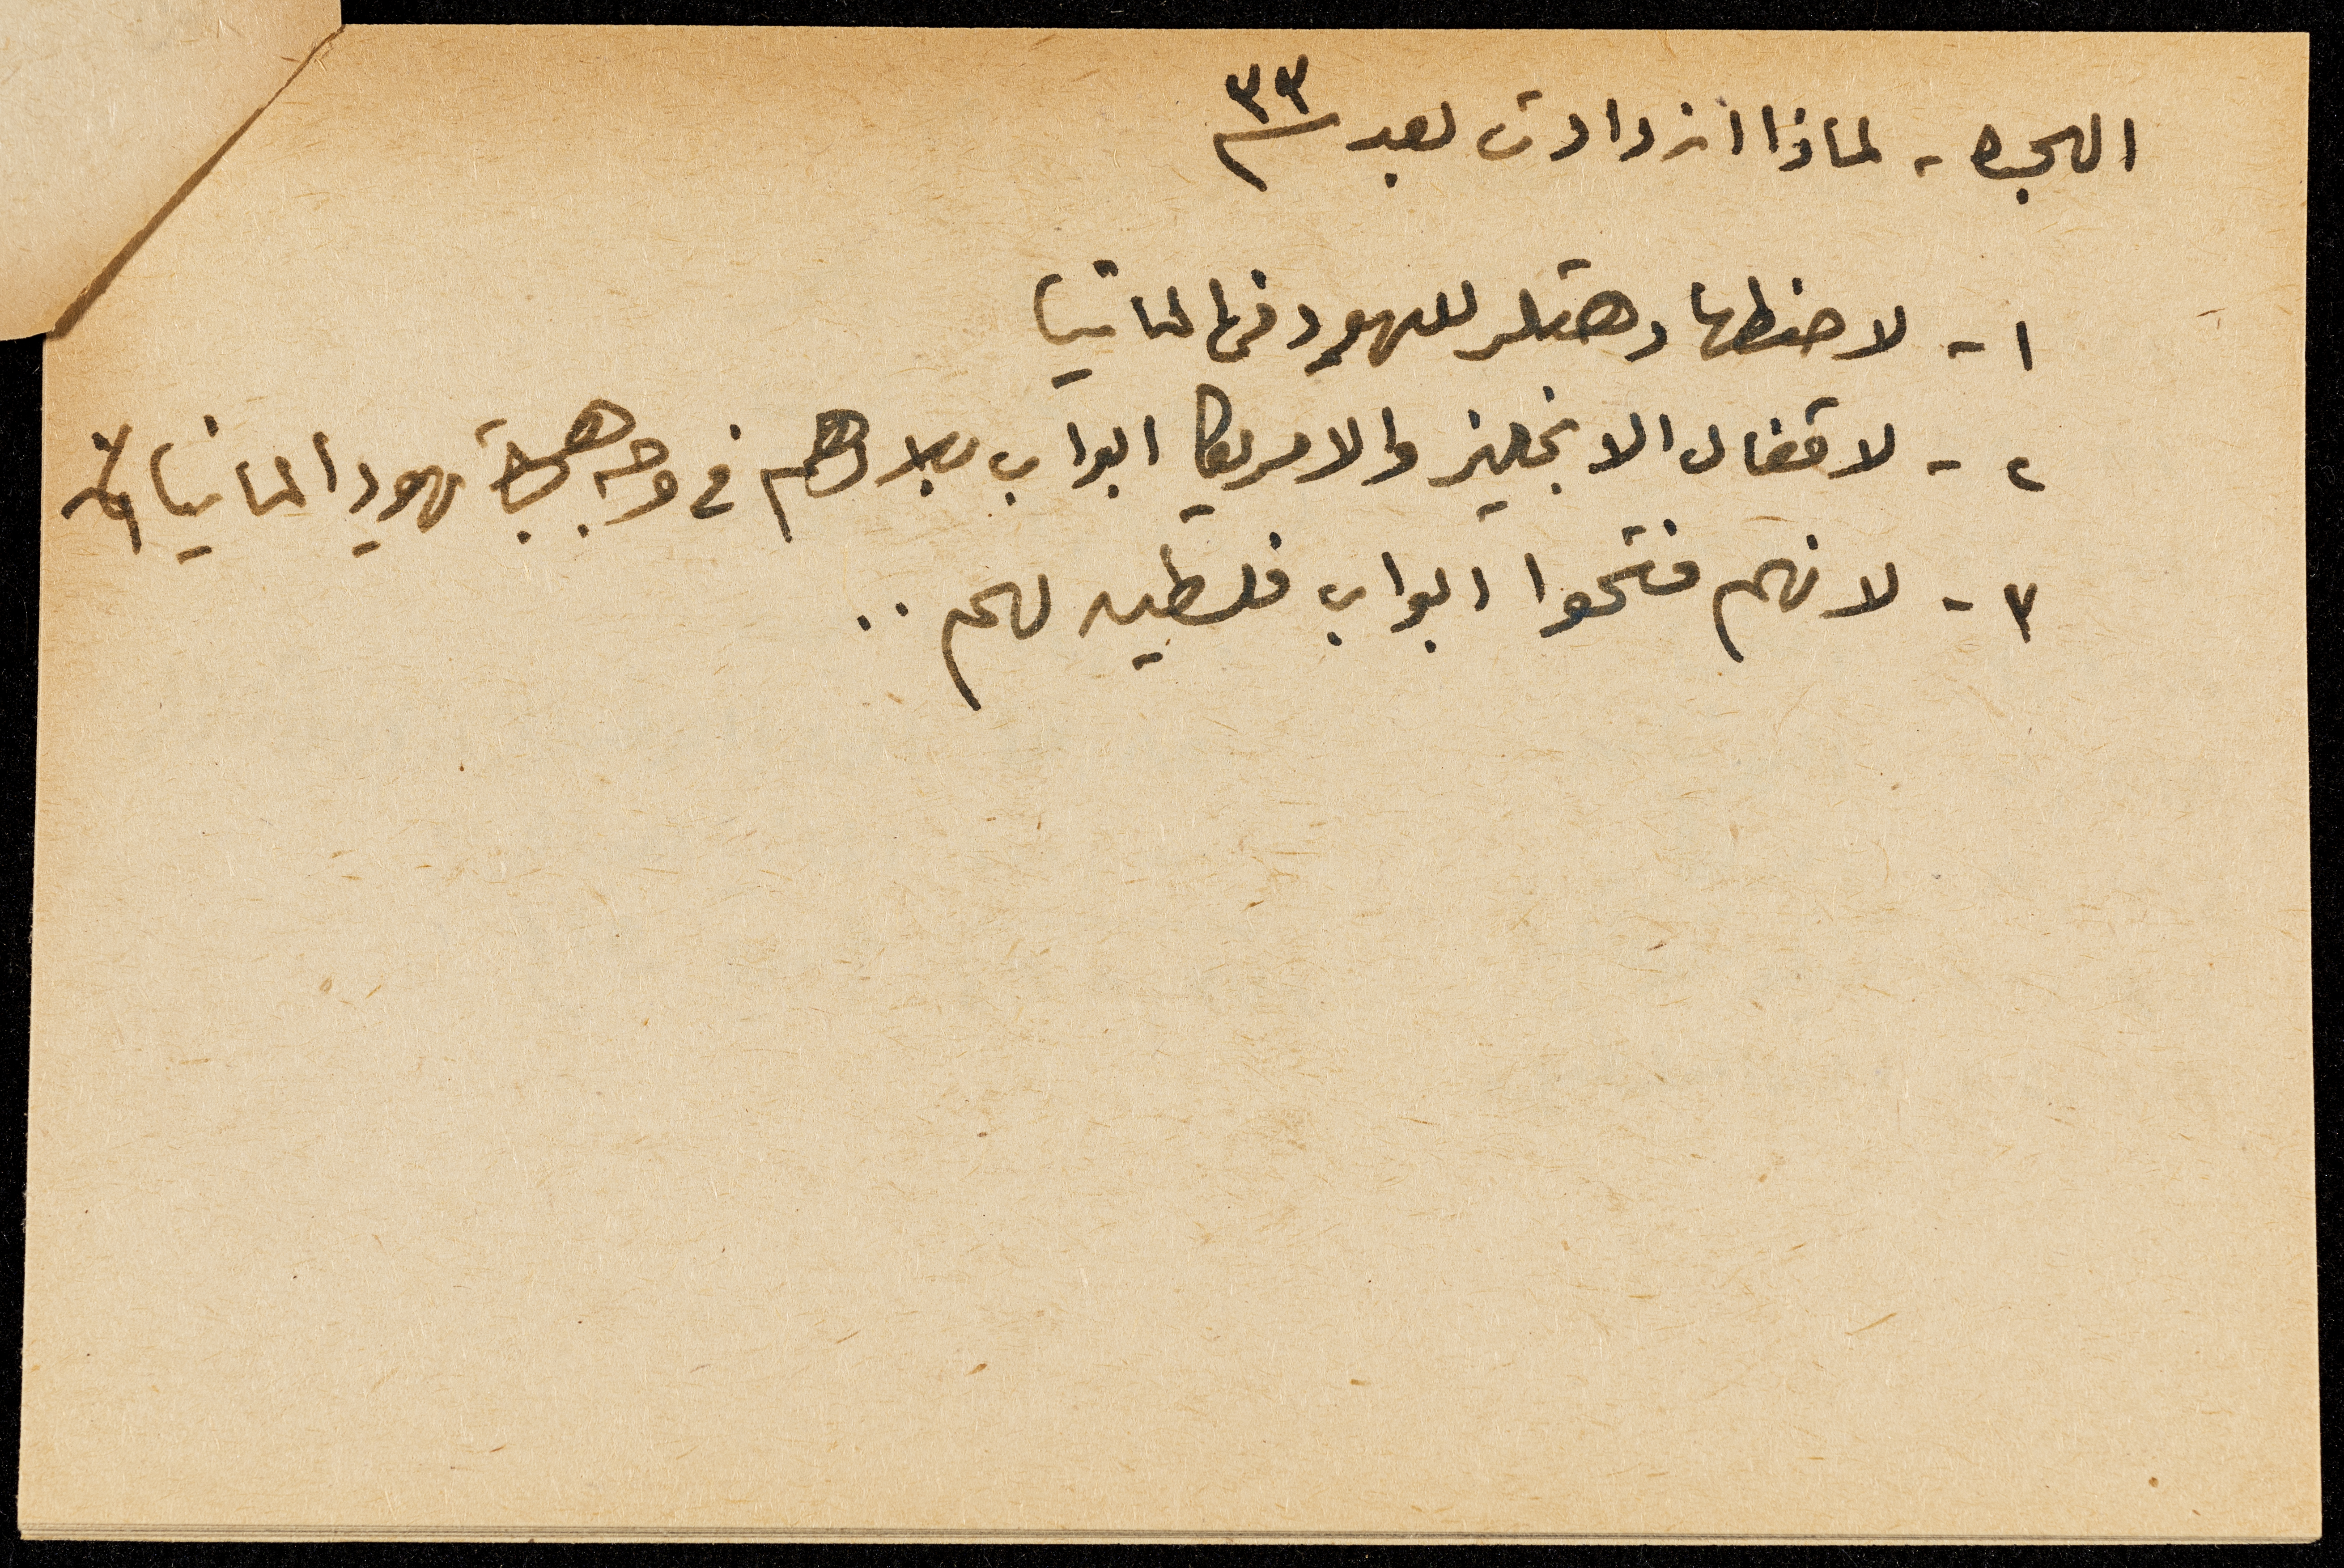 الهجره - لماذا ازدادت بعد سنة ٣٣
١ - لاضطهاد هتلر لليهود في المانيا
٢ - لاقفال الانجليز والامريكا ابواب بلادهم في وجه هجرة يهود المانيا
٣ - لانهم فتحوا ابواب فلسطين لهم ..